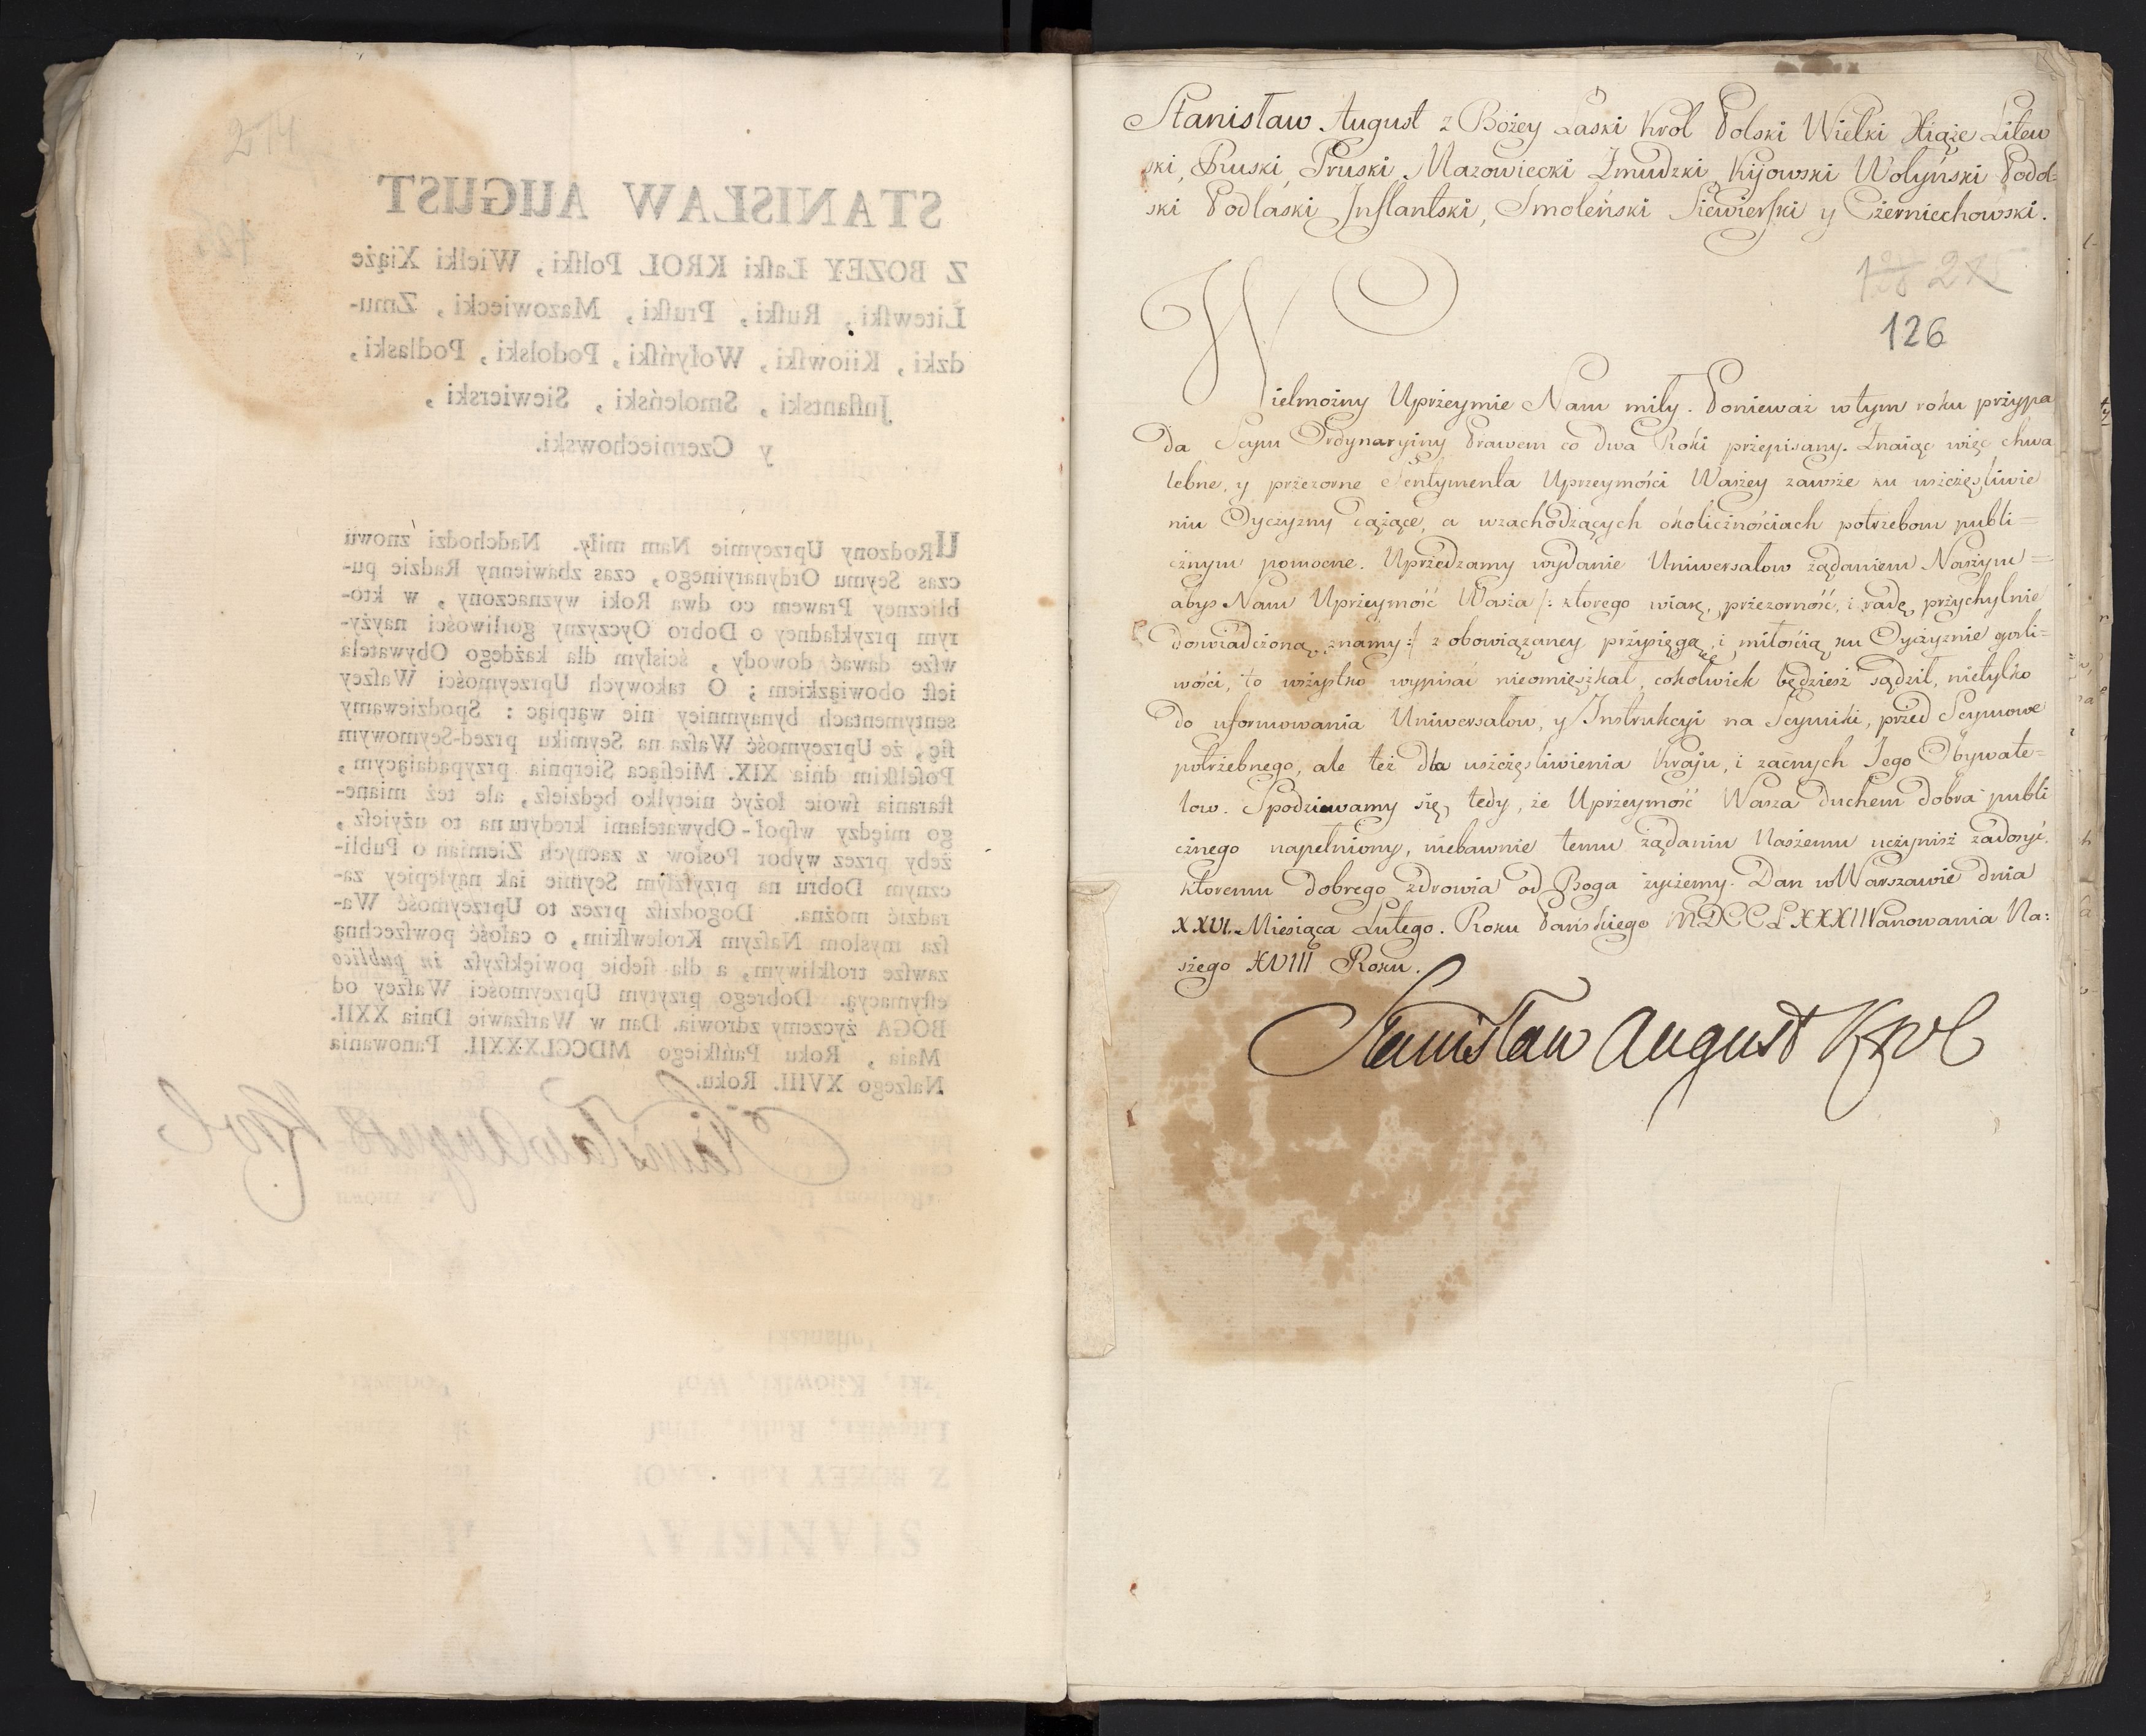 274
STANISŁAW AUGUST
Z BOZEY Łaſki KROL Polſki, Wielki Xiąże
Litewſki, Ruſki, Pruſki, Mazowiecki, Zmu-
dzki, Kiiowſki, Wołyńſki, Podolski, Podlaski,
Inflantski, Smoleński, Siewierski,
y Czerniechowski.
URodzony Uprzeymie Nam miły. Nadchodzi znowu
czas Seymu Ordynaryinego, czas zbawienny Radzie pu-
bliczney Prawem co dwa Roki wyznaczony, w kto-
rym przykładney o Dobro Oyczyzny gorliwości nayży-
wſze dawać dowody, ściſłym dla każdego Obywatela
ieſt obowiązkiem; O takowych Uprzeymości Waſzey
sentymentach bynaymniey nie wątpiąc: Spodziewamy
ſię, że Uprzeymość Waſza na Seymiku przed-Seymowym
Poſelſkim dnia XIX. Mieſiąca Sierpnia przypadaiącym,
ſtarania ſwoie łożyć nietylko będzieſz, ale też miane-
go między wſpoł-Obywatelami kredytu na to użyieſz,
żeby przez wybor Poſłow z zacnych Ziemian o Publi-
cznym Dobru na przyſzłym Seymie iak naylepiey za-
radzić można. Dogodziſz przez to Uprzeymość Wa-
ſza myslom Naſzym Krolewſkim, o całość powſzechną
zawſze troſkliwym, a dla ſiebie powiękſzyſz in publico
eſtymacyą. Dobrego przytym Uprzeymości Waſzey od
BOGA życzemy zdrowia. Dan w Warſzawie Dnia XXII.
Maia, Roku Pańſkiego MDCCLXXXII. Panowania
Naſzego XVIII. Roku.
Stanisław August Krol
Stanisław August z Bożey Łaski Krol Polski Wielki Xiąże Litew
ski, Ruski, Pruski, Mazowiecki Żmudzki Kijowski Wołyński Podol-
ski Podlaski Inflantski, Smoleński Siewierski y Czerniechowski.
126
Wielmożny Uprzeymie Nam miły. Ponieważ w tym roku przypa
da Seym Ordynaryiny Prawem co dwa Roki przepisany. Znaiąc więc chwa
lebne, y przezorne Sentymenta Uprzeymości Waszey zawsze ku uszczęśliwie
niu Oyczyzny dążące, a w zachodzących okolicznościach potrzebom publi=
cznym pomocne. Uprzedzamy wydanie Uniwersałow żądaniem Naszym=
abyś Nam Uprzeymość Wasza /: ktorego wiarę, przezorność, i radę przychylnie
doswiadczoną znamy :/ z obowiązaney przysięgą, i miłością ku Oyczyznie gorli=
wości, to wszystko wypisać nieomieszkał, cokolwiek będziesz sądził, nietylko
do uformowania Uniwersałow, y Instrukcyi na Seymiki, przed Seymowe
potrzebnego, ale też dla uszczęśliwienia Kraju, i zacnych Jego Obywate=
low. Spodziewamy się, tedy, że Uprzeymość Wasza duchem dobra publi
cznego napełniony, niebawnie temu żądaniu Naszemu uczynisz zadosyć.
ktoremu dobrego zdrowia od Boga życzemy. Dan w Warszawie dnia
XXVI. Miesiąca Lutego. Roku Pańskiego MDCCLXXXII Panowania Na:
szego XVIII Roku.
Stanisław August Krol